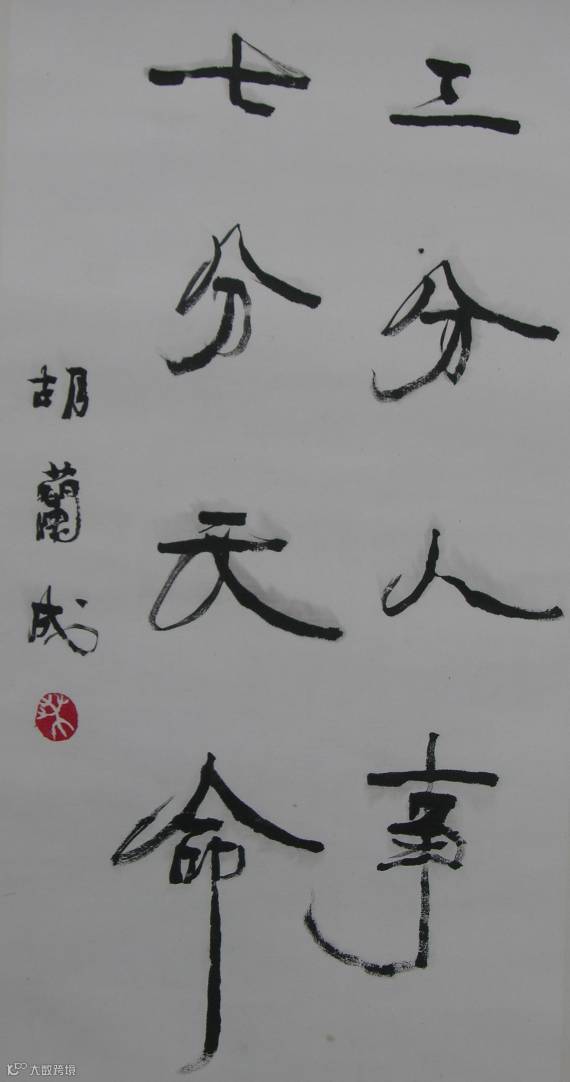 三分人事
七分天命
胡蘭成
大数跨境